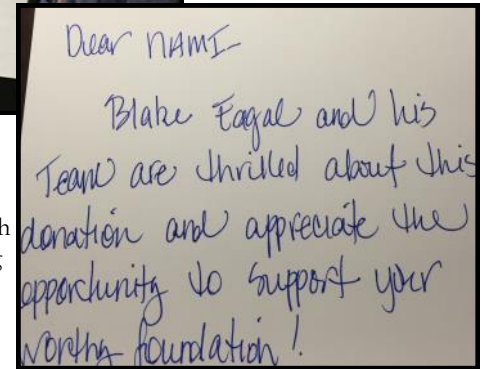 Dear NAMI-
Blake Fagal and his
Team are thrilled about this
donation and appreciate the
opportunity to support your
worthy foundation!